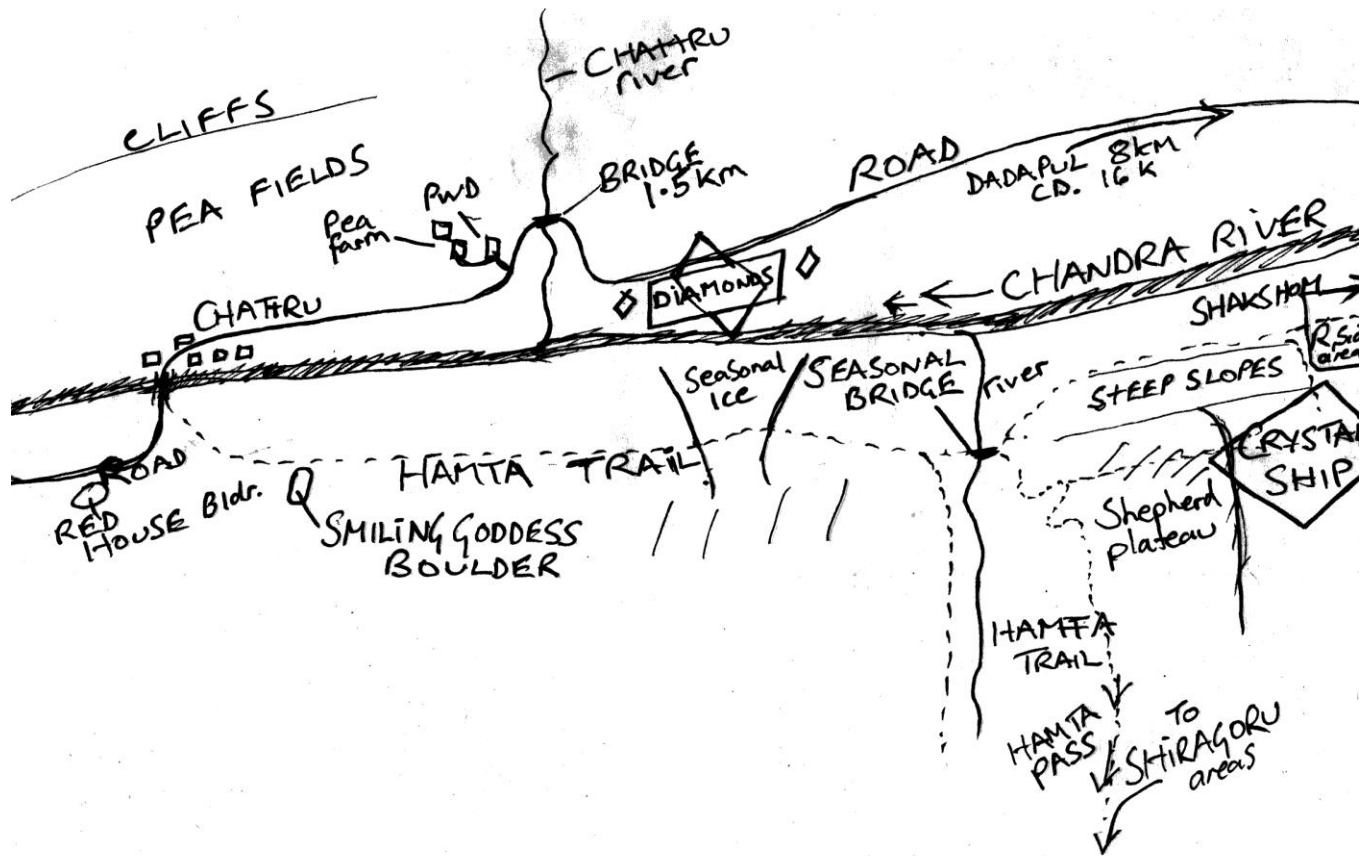 CHATTRU
river
CLIFFS
PEA FIELDS
PWD
Pea
farm
BRIDGE
1.5 km
ROAD
DADAPUL 8KM
CD. 16 K
CHATTRU
DIAMONDS
CHANDRA RIVER
SHAKSHOM
R.Sid
area
Seasonal
ice
SEASONAL
BRIDGE
river
STEEP SLOPES
CRYSTAL
SHIP
ROAD
RED
HOUSE Bldr.
HAMTA TRAIL
SMILING GODDESS
BOULDER
Shepherd
plateau
HAMTA
TRAIL
HAMTA
PASS
TO
SHIRAGORU
areas